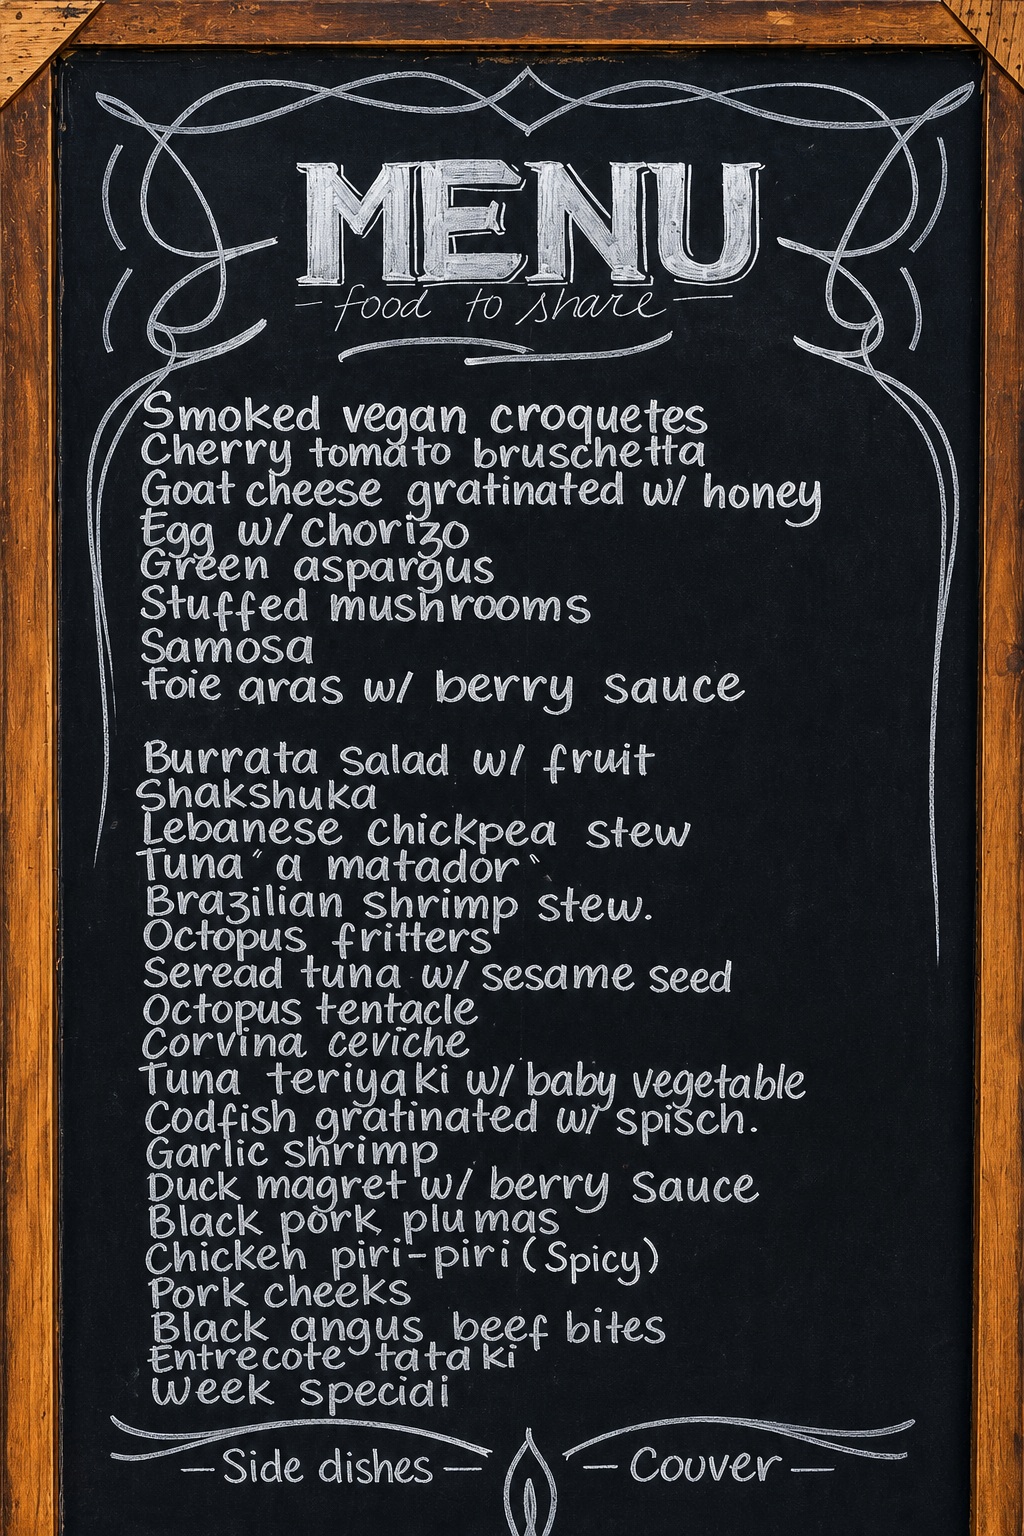 MENU
food to share
Smoked vegan croquetes
Cherry tomato bruschetta
Goat cheese gratinated w/ honey
Egg w/ chorizo
Green aspargus
Stuffed mushrooms
Samosa
foie aras w/ berry sauce
Burrata salad w/ fruit
Shakshuka
Lebanese chickpea stew
Tuna "a matador"
Brazilian shrimp stew.
Octopus fritters
Seread tuna w/ sesame seed
Octopus tentacle
Corvina ceviche
Tuna teriyaki w/ baby vegetable
Codfish gratinated w/ spisch.
Garlic shrimp
Duck magret w/ berry sauce
Black pork plumas
Chicken piri-piri (Spicy)
Pork cheeks
Black angus beef bites
Entrecote tataki
Week speciai
— Side dishes — — Couver —